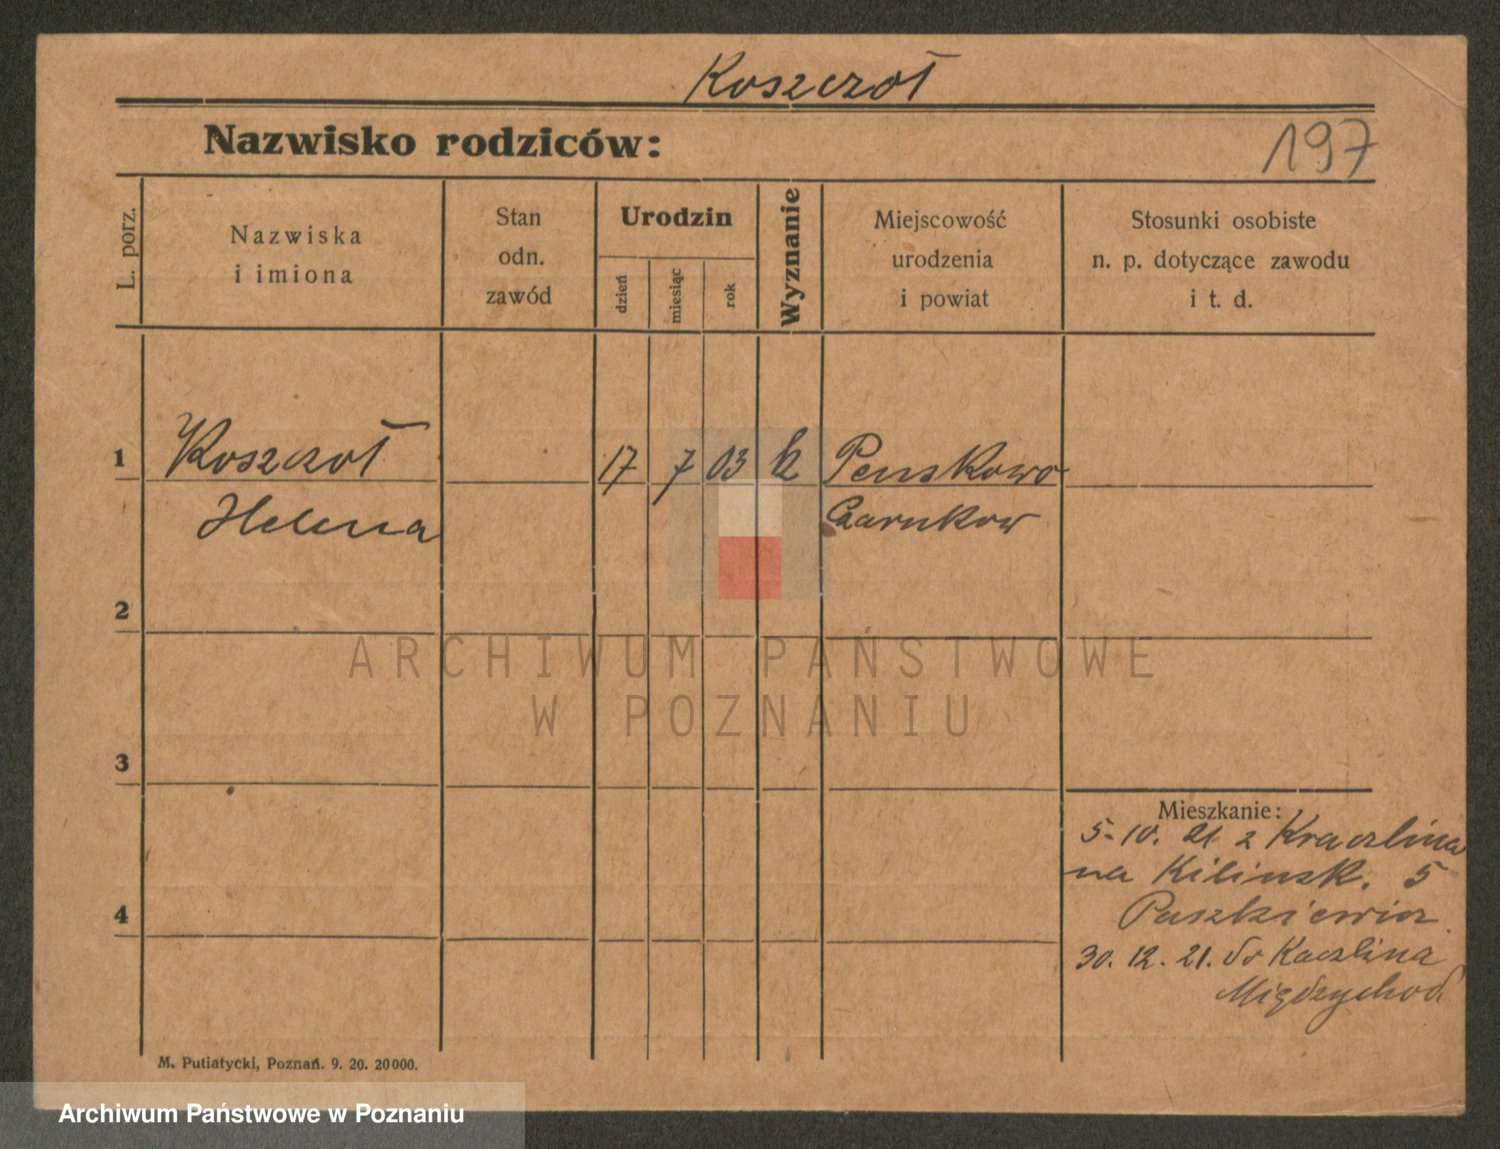 Koszczoł
Nazwisko rodziców:
197
L. porz.
Nazwiska
i imiona
Stan
odn.
zawód
Urodzin
dzień
miesiąc
rok
Wyznanie
Miejscowość
urodzenia
i powiat
Stosunki osobiste
n. p. dotyczące zawodu
i t. d.
1 Koszczoł 17 7 03 k Penskowo
Helena Czarnkow
2
3
4
Mieszkanie:
5-10. 21 z Kraczlina
na Kilinsk. 5
Paszkiewicz
30. 12. 21. do Kaczlina
Międzychod
M. Putiatycki, Poznań. 9. 20. 20000.
ARCHIWUM PAŃSTWOWE
W POZNANIU
Archiwum Państwowe w Poznaniu